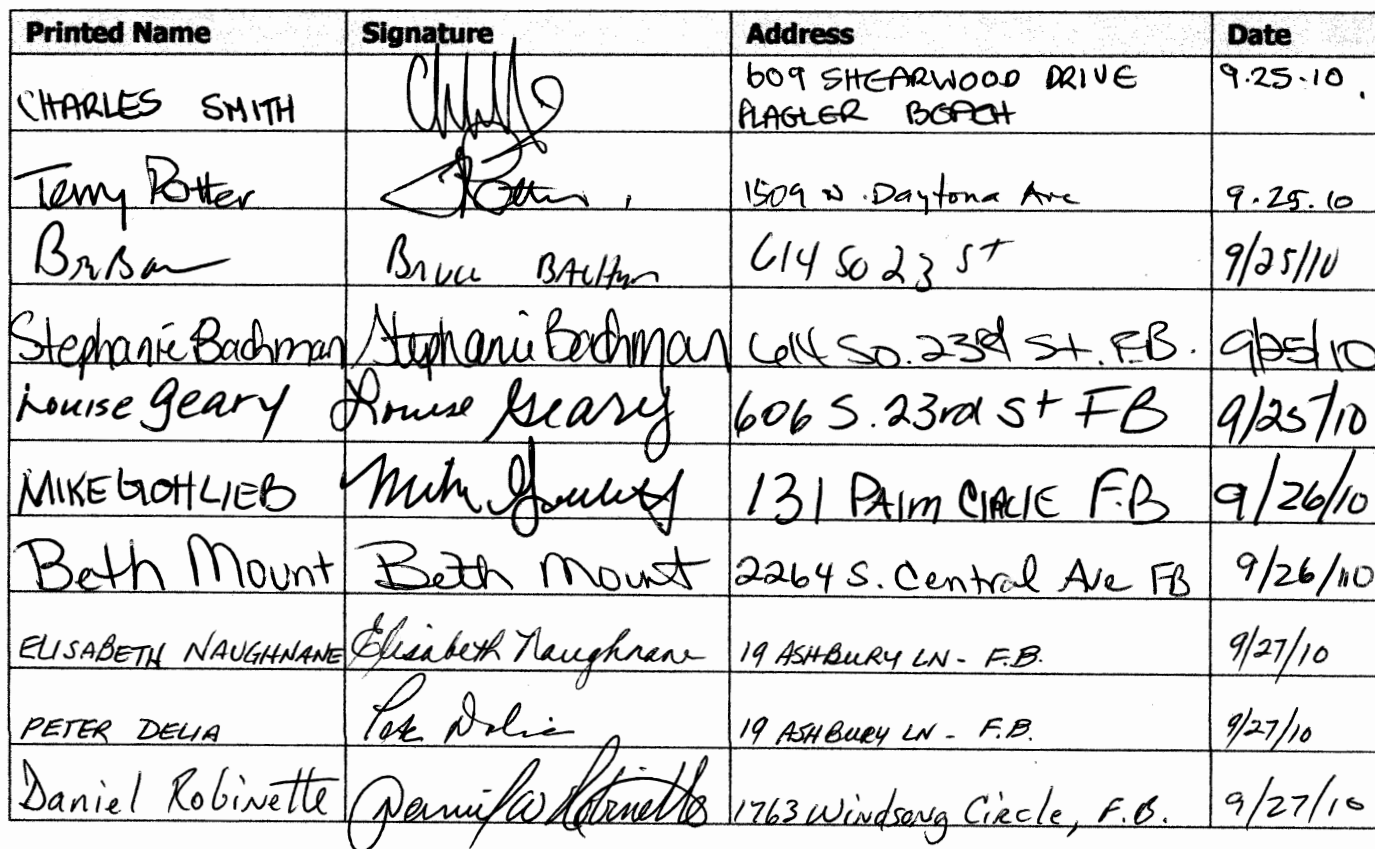 Printed Name Signature Address Date
CHARLES SMITH 609 SHEARWOOD DRIVE 9.25.10
FLAGLER BEACH
Terry Potter Potter 1509 N. Daytona Ave 9.25.10
Bruce 614 So 23 St 9/25/10
Stephanie Bachman Stephanie Bachman 614 So. 23rd St. F.B. 9/25/10
Louise Geary Louise Geary 606 S. 23rd St FB 9/25/10
MIKE GOTTLIEB Mike 131 PAlm CIRClE F.B 9/26/10
Beth Mount Beth Mount 2264 S. Central Ave FB 9/26/10
ELISABETH NAUGHNANE Elisabeth Naughnane 19 ASHBURY LN - F.B. 9/27/10
PETER DELIA Pete Delia 19 ASHBURY LN - F.B. 9/27/10
Daniel Robinette Daniel W Robinette 1763 Windsong Circle, F.B. 9/27/10